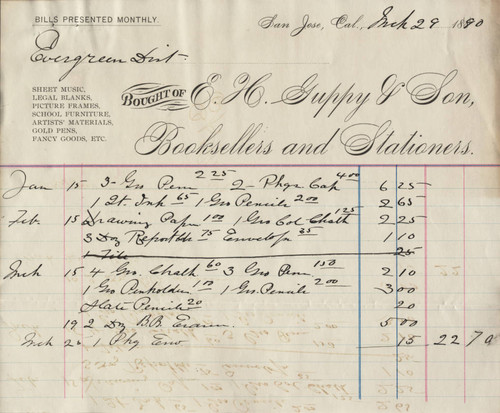 BILLS PRESENTED MONTHLY.
San Jose, Cal., Mch 29 1890
Evergreen Dist.
SHEET MUSIC,
LEGAL BLANKS,
PICTURE FRAMES,
SCHOOL FURNITURE,
ARTISTS' MATERIALS,
GOLD PENS,
FANCY GOODS, ETC.
BOUGHT OF E. H. Guppy & Son,
Booksellers and Stationers.
Jan 15 3- Gro Penn 2 25 2- Phgs Cap 4.00 6 25
1 2t. Ink 65 1 Gro Pencils 2.00 2 65
Feb. 15 Drawing Paper 1 00 1 Gro Col Chalk 1 25 2 25
3 Dz Reports 75 Envelops 35 1 10
1 File 25
Mch 15 4 Gro. Chalk 60 3 Gro Penn 1 50 2 10
1 Gro Penholder 1 00 1 Gro Pencils 2.00 3 00
Slate Pencils 20 20
19 2 Dz B.B. Erasers 5 00
Mch 1 Pkg Env 15 22 70